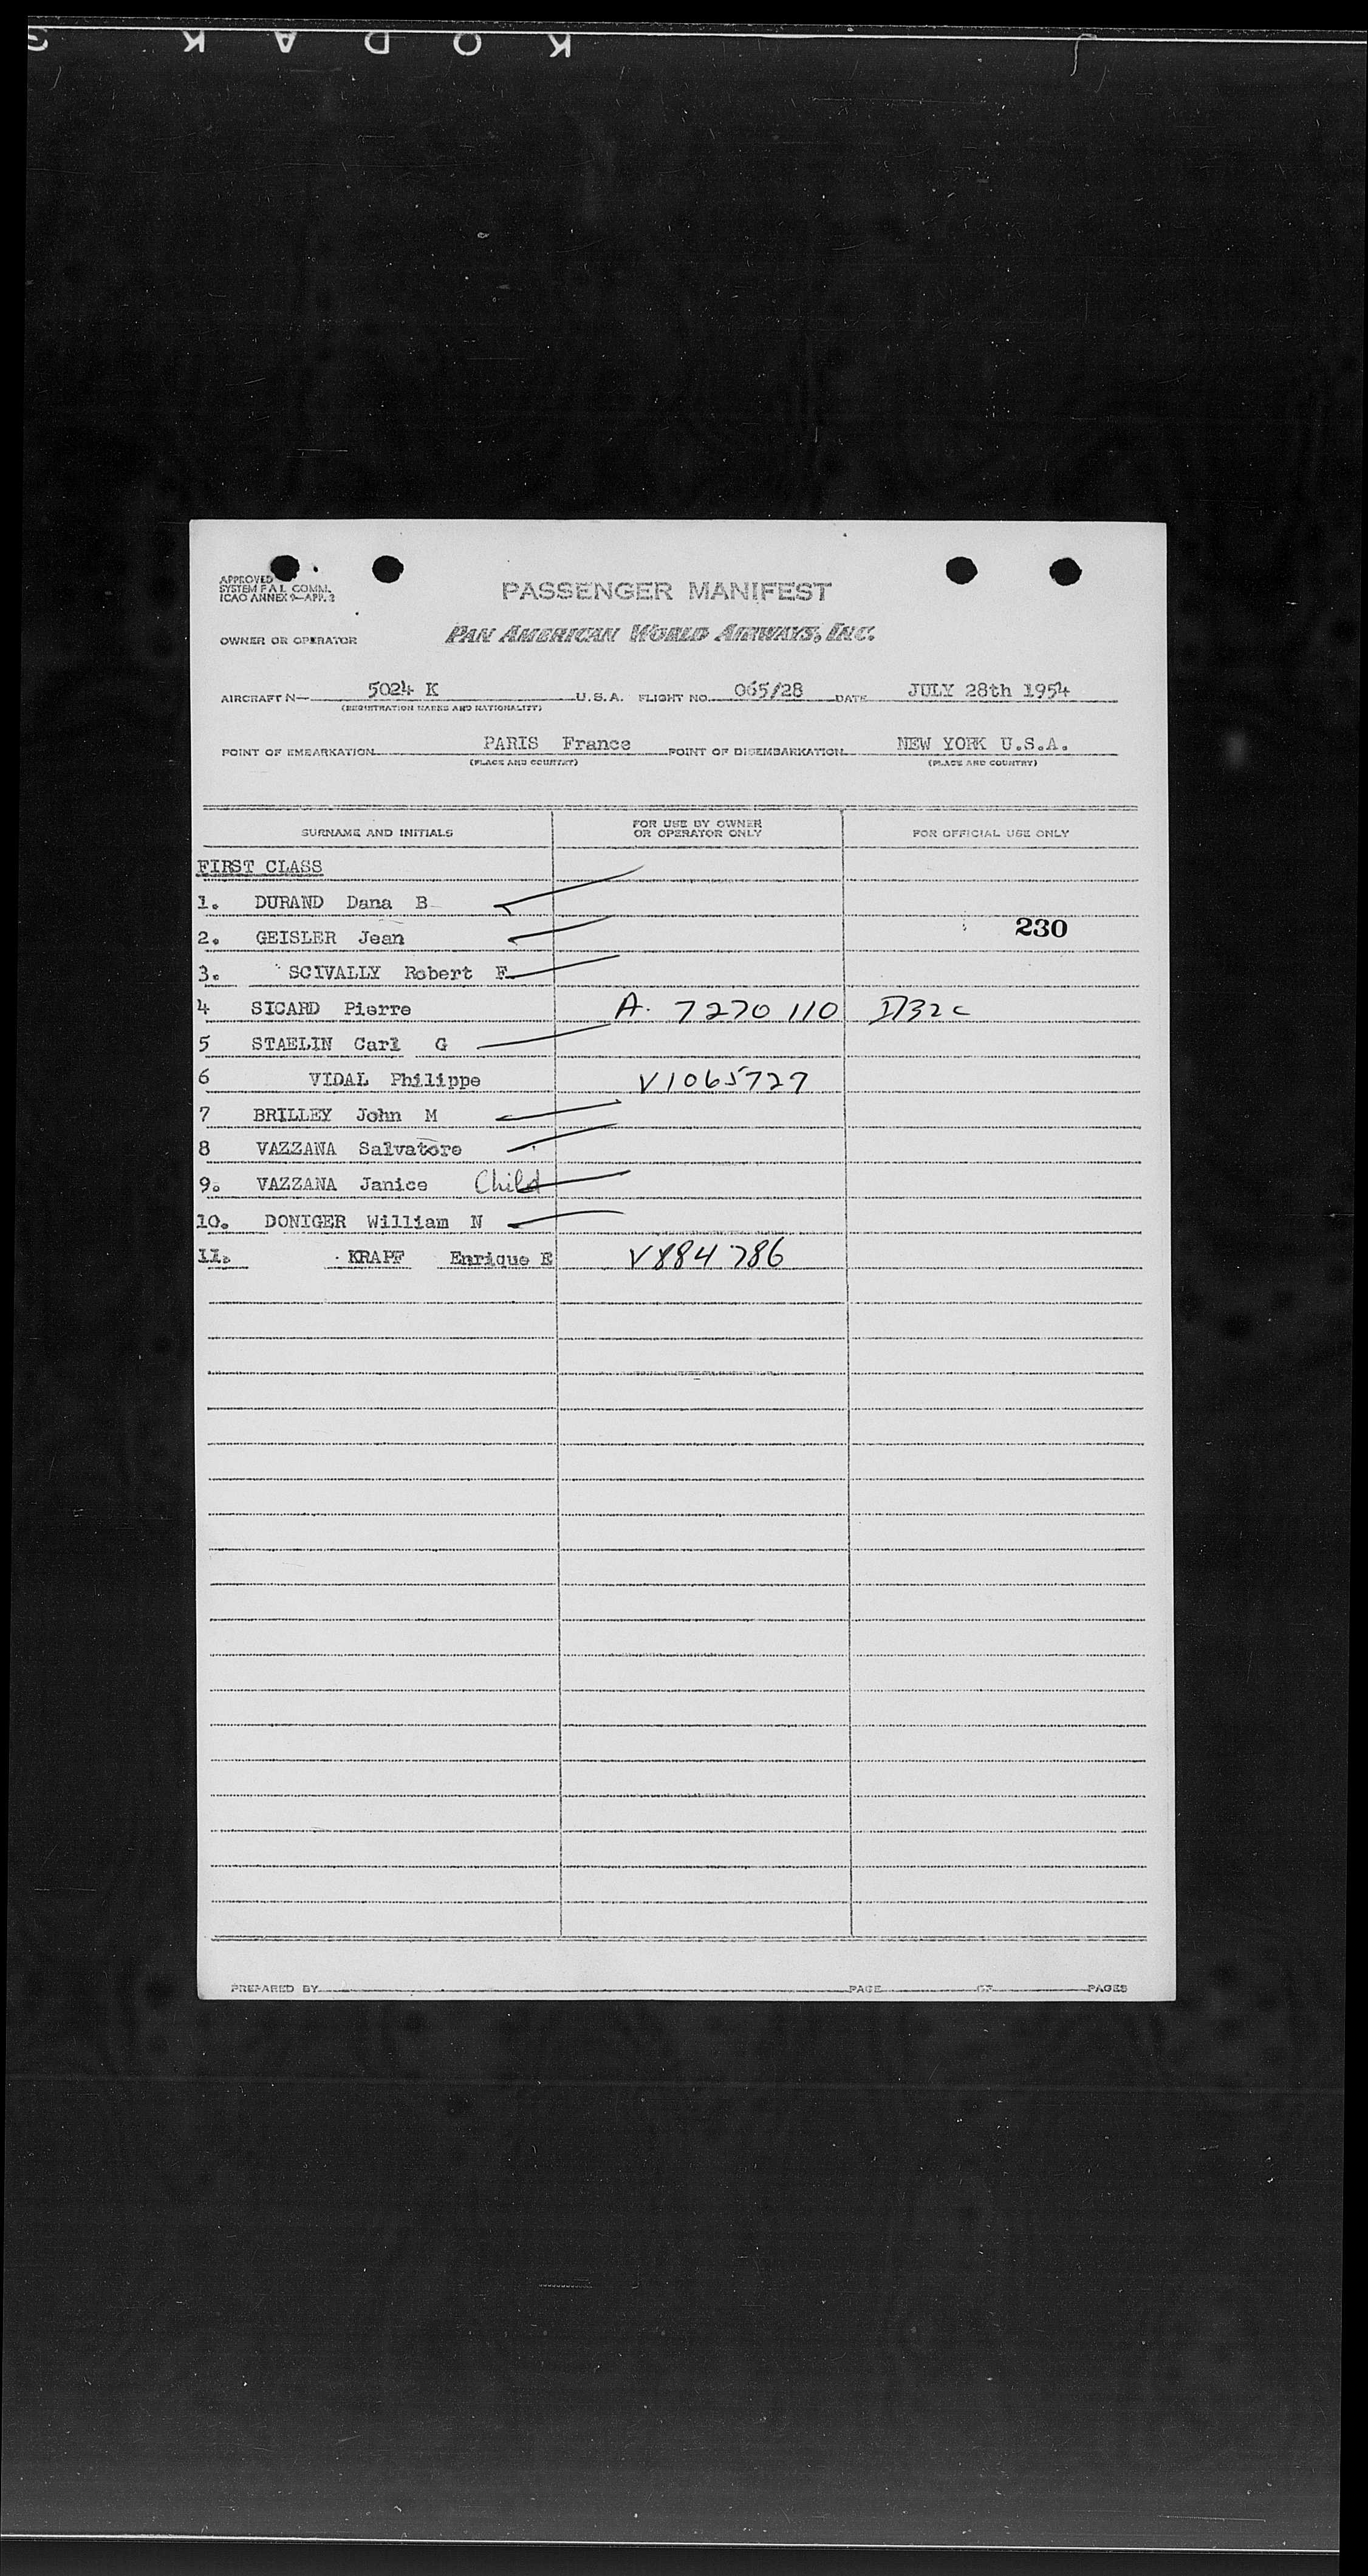 KODAK S
APPROVED
SYSTEM F A L COMM.
ICAO ANNEX 9—APP. 3
PASSENGER MANIFEST
OWNER OR OPERATOR
PAN AMERICAN WORLD AIRWAYS, INC.
AIRCRAFT N— 5024 K U.S.A. FLIGHT NO. 065/28 DATE JULY 28th 1954
(REGISTRATION MARKS AND NATIONALITY)
POINT OF EMBARKATION PARIS France POINT OF DISEMBARKATION NEW YORK U.S.A.
(PLACE AND COUNTRY) (PLACE AND COUNTRY)
SURNAME AND INITIALS FOR USE BY OWNER OR OPERATOR ONLY FOR OFFICIAL USE ONLY
FIRST CLASS
1. DURAND Dana B
2. GEISLER Jean 230
3. SCIVALLY Robert F
4 SICARD Pierre A. 7270 110
5 STAELIN Carl G
6 VIDAL Philippe V1065727
7 BRILLEY John M
8 VAZZANA Salvatore
9. VAZZANA Janice Child
10. DONIGER William N
11. KRAPF Enrique E V884786
PREPARED BY PAGE OF PAGES